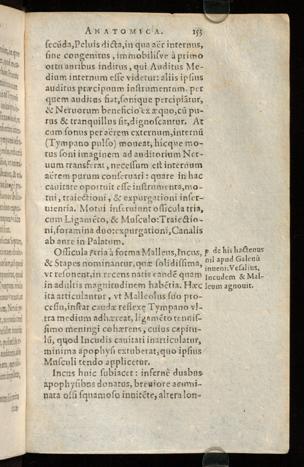 ANATOMICA. 155
secũda, Peluis dicta, in qua aër internus,
siue congenitus, immobilisve à primo
ortu auribus inditus, qui Auditus Me-
dium internum esse videtur: aliis ipsius
auditus præcipuum instrumentum. per
quem auditus fiat, sonique percipiãtur,
& Neruorum beneficio ex æquo, cũ pu-
rus & tranquillus sit, dignoscantur. At
cum sonus per aërem externum, internũ
(Tympano pulso) moueat, hicque mo-
tus soni imaginem ad auditorium Ner-
uum transferat, necessum est internum
aërem purum conseruari: quare in hac
cauitate oportuit esse instrumenta, mo-
tui, traiectioni, & expurgationi inser-
uientia. Motui inseruiunt ossicula tria,
cum Ligamẽto, & Musculo: Traiectio-
ni, foramina duo: expurgationi, Canalis
ab aure in Palatum.
Ossicula tria à forma Malleus, Incus,
& Stapes nominantur, quæ solidissima,
vt resonent, in recens natis eandẽ quam
in adultis magnitudinem habẽtia. Hæc
ita articulantur, vt Malleolus suo pro-
cessu, instar caudæ reflexę Tympano vl-
tra medium adhæreat, ligamẽto tenuis-
simo meningi cohærens, cuius capitu-
lũ, quod Incudis cauitati inarticulatur,
minima apophysi exuberat, quo ipsius
Musculi tendo applicetur.
Incus huic subiacet: infernè duabus
apophysibus donatus, breuiore acumi-
nata ossi squamoso innitẽte, altera lon-
de his hactenus
nil apud Galenũ
inueni. Vesalius,
Incudem & Mal-
leum agnouit.